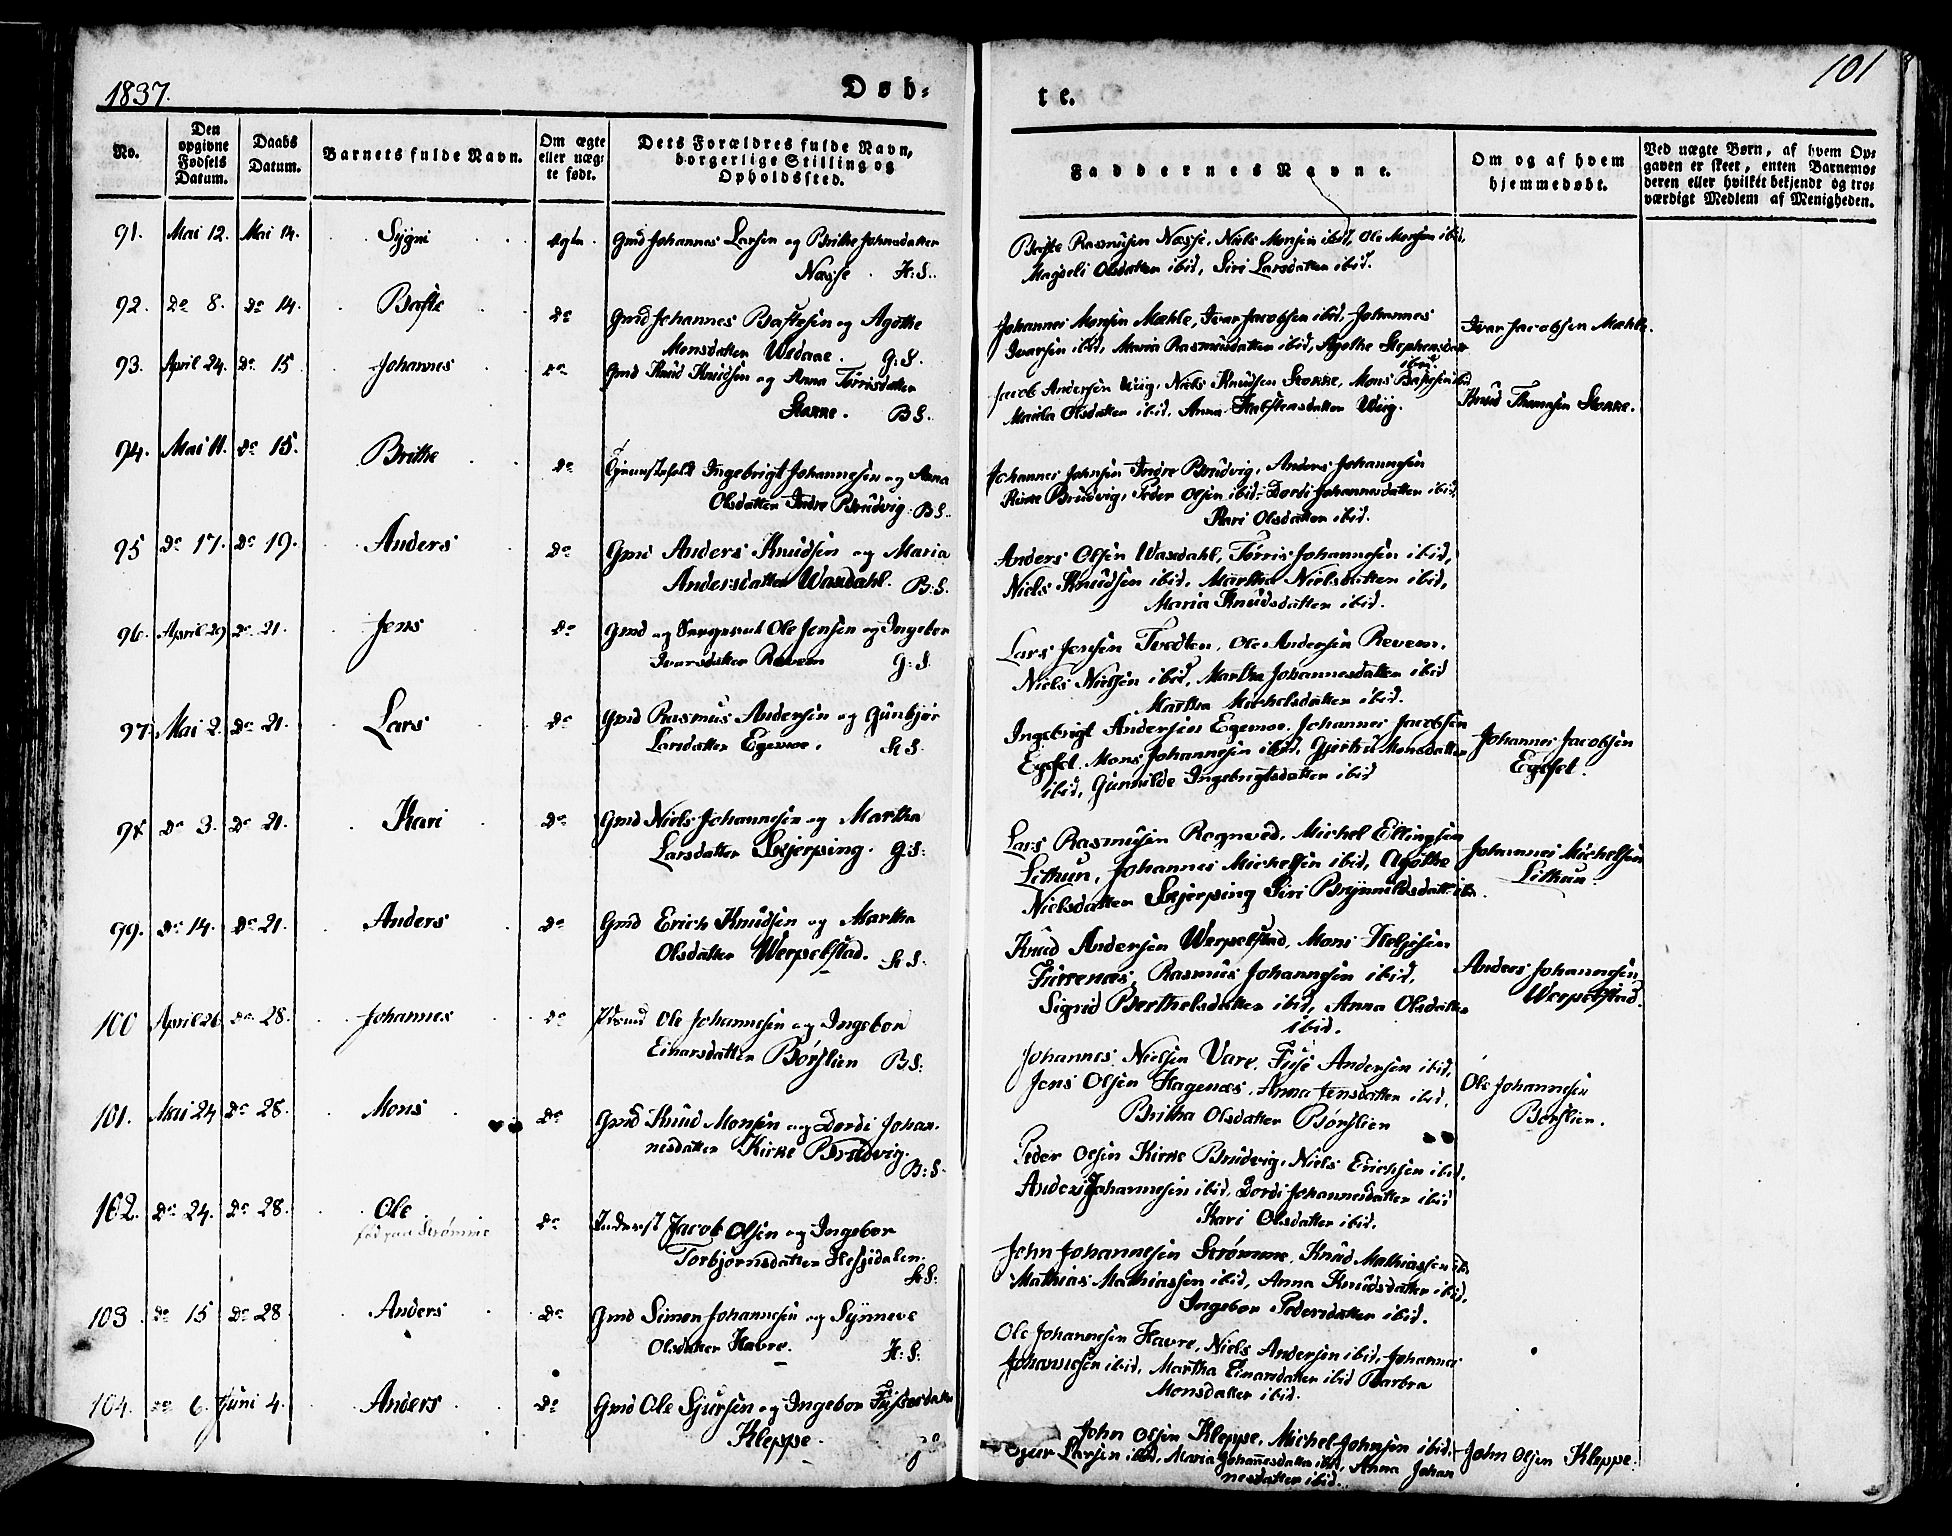 1837.
Døb-
te.
101
No.
Den
opgivne
Fødsels
Datum.
Daabs
Datum.
Barnets fulde Navn.
Om ægte
eller uæg-
te født.
Dets Forældres fulde Navn,
borgerlige Stilling og
Opholdssted.
Faddernes Navne.
Om og af hvem
hjemmedøbt.
Ved uægte Børn, af hvem Op-
gaven er skeet, enten Barnemo-
deren eller hvilket bekjendt og tro-
værdigt Medlem af Menigheden.
91. Mai 12. Mai 14. Sygni ægte. Gmd Johannes Larsen og Brithe Johnsdatter
Næsse. H:S.
Baste Rasmusen Næsse, Niels Monsen ibid, Ole Monsen ibid,
Magdeli Olsdatter ibid, Siri Larsdatter ibid.
92. do 8. do 14. Baste do Gmd Johannes Bastesen og Agothe
Monsdatter Wedaae. G:S.
Johannes Monsen Mæhle, Ivar Jacobsen ibid, Johannes
Ivarsen ibid, Maria Rasmusdatter ibid, Agothe Stephensdatt
ibid.
Ivar Jacobsen Mæhle.
93. April 24. do 15 Johannes do Gmd Knud Knudsen og Anna Tørrisdatter
Stokke. B S.
Jacob Andersen Wiig, Niels Knudsen Stokke, Mons Bastesen ibid
Marila Olsdatter ibid. Anna Halstensdatter Wiig.
Knud Thomsen Stokke.
94. Mai 11. do 15. Brithe do Ingebrigt Johannesen og Anna
Olsdatter Indre Brudvig. B S.
Johannes Johnsen Indre Brudvig, Anders Johannesen
Kirke Brudvig, Peder Olsen ibid, Dordi Johannesdatter ibid,
Kari Olsdatter ibid.
95 do 17. do 19. Anders do Gmd Anders Knudsen og Maria
Andersdatter Waxdahl. B:S.
Anders Olsen Waxdahl, Tørris Johannesen ibid,
Niels Knudsen ibid, Martha Nielsdatter ibid,
Maria Knudsdatter ibid.
96. April 29 do 21. Jens do Gmd og Sergeant Ole Jensen og Ingebor
Ivarsdatter Revem G:S.
Lars Jensen Tvedten, Ole Andersen Revem,
Niels Nielsen ibid, Martha Johannesdatter ibid
Martha Michelsdatter ibid.
97. Mai 2. do 21. Lars do Gmd Rasmus Andersen og Gunbjør
Larsdatter Egemoe. H S.
Ingebrigt Andersen Egemoe, Johannes Jacobsen
Egeset. Mons Johannesen ibid, Gjertrud Monsdatter
ibid, Gunnilde Ingebrigtsdatter ibid
Johannes Jacobsen
Egeset.
98 do 3. do 21. Kari do Gmd Niels Johannesen og Martha
Larsdatter Skjerping. G:S:
Lars Rasmusen Rognved, Michel Ellingsen
Lithun, Johannes Michelsen ibid, Agothe
Nielsdatter Skjerping Siri Brynnildsdatt. ibi.
Johannes Michelsen
Lithun.
99. do 14. do 21. Anders do Gmd Erich Knudsen og Martha
Olsdatter Werpelstad. H S.
Knud Andersen Werpelstad, Mons Helgesen
Furrenæs, Rasmus Johannesen ibid,
Sigrid Berthelsdatter ibid, Anna Olsdatter
ibid.
Anders Johannesen
Werpelstad.
100 April 26 do 28. Johannes do Ole Johannesen og Ingebor
Einarsdatter Børslien B S:
Johannes Nielsen Vare, Fuse Andersen ibid,
Jens Olsen Hagenæs, Anna Jensdatter ibid,
Britha Olsdatter Børslien
Ole Johannesen
Børslien.
101. Mai 24 do 28. Mons do Gmd Knud Monsen og Dordi Johan-
nesdatter Kirke Brudvig. B:S.
Peder Olsen Kirke Brudvig, Niels Erichsen ibid,
Anders Johannesen ibid, Dordi Johannesdatter ibid
Kari Olsdatter ibid.
102. do 24. do 28. Ole do Inderst Jacob Olsen og Ingebor
fød paa Strømme
Torbjørnsdatter Hessjedalen.
H S:
John Johannesen Strømme, Knud Mathiassen ibi.
Mathias Mathiassen ibid, Anna Knudsdatter ibid,
Ingebor Pedersdatter ibid.
103 do 15 do 28 Anders do Gmd Simon Johannesen og Synneve
Olsdatter Havre. H:S:
Ole Johannesen Havre, Niels Andersen ibid, Johannes
Johannesen ibid, Martha Einarsdatter ibid Barbra
Monsdatter ibid.
104. do 6. Juni 4. Anders do Gmd Ole Sjursen og Ingebor
Kleppe.
John Olsen Kleppe, Michel Johnsen ibid.
Sjur Larsen ibid, Maria Johannesdatter ibid, Anna Johan
nesdatter ibid.
John Olsen Kleppe.